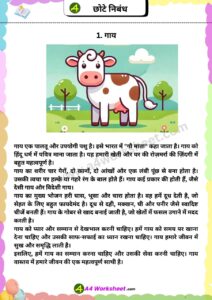 A4 छोटे निबंध
1. गाय
गाय एक पालतू और उपयोगी पशु है। इसे भारत में "गौ माता" कहा जाता है। गाय को
हिंदू धर्म में पवित्र माना जाता है। यह हमारी खेती और घर की रोज़मर्रा की ज़िंदगी में
बहुत महत्वपूर्ण है।
गाय का शरीर चार पैरों, दो कानों, दो आंखों और एक लंबी पूंछ से बना होता है।
उसकी त्वचा पर हल्के या गहरे रंग के बाल होते हैं। गाय कई प्रकार की होती हैं, जैसे
देसी गाय और विदेशी गाय।
गाय का मुख्य भोजन हरी घास, भूसा और चारा होता है। वह हमें दूध देती है, जो
सेहत के लिए बहुत फायदेमंद है। दूध से दही, मक्खन, घी और पनीर जैसे स्वादिष्ट
चीजें बनती हैं। गाय के गोबर से खाद बनाई जाती है, जो खेतों में फसल उगाने में मदद
करती है।
गाय को प्यार और सम्मान से देखभाल करनी चाहिए। हमें गाय को समय पर खाना
देना चाहिए और उसकी साफ-सफाई का ध्यान रखना चाहिए। गाय हमारे जीवन में
सुख और समृद्धि लाती है।
इसलिए, हमें गाय का सम्मान करना चाहिए और उसकी सेवा करनी चाहिए। गाय
वास्तव में हमारे जीवन की एक महत्वपूर्ण साथी है।
A4 Worksheet.com